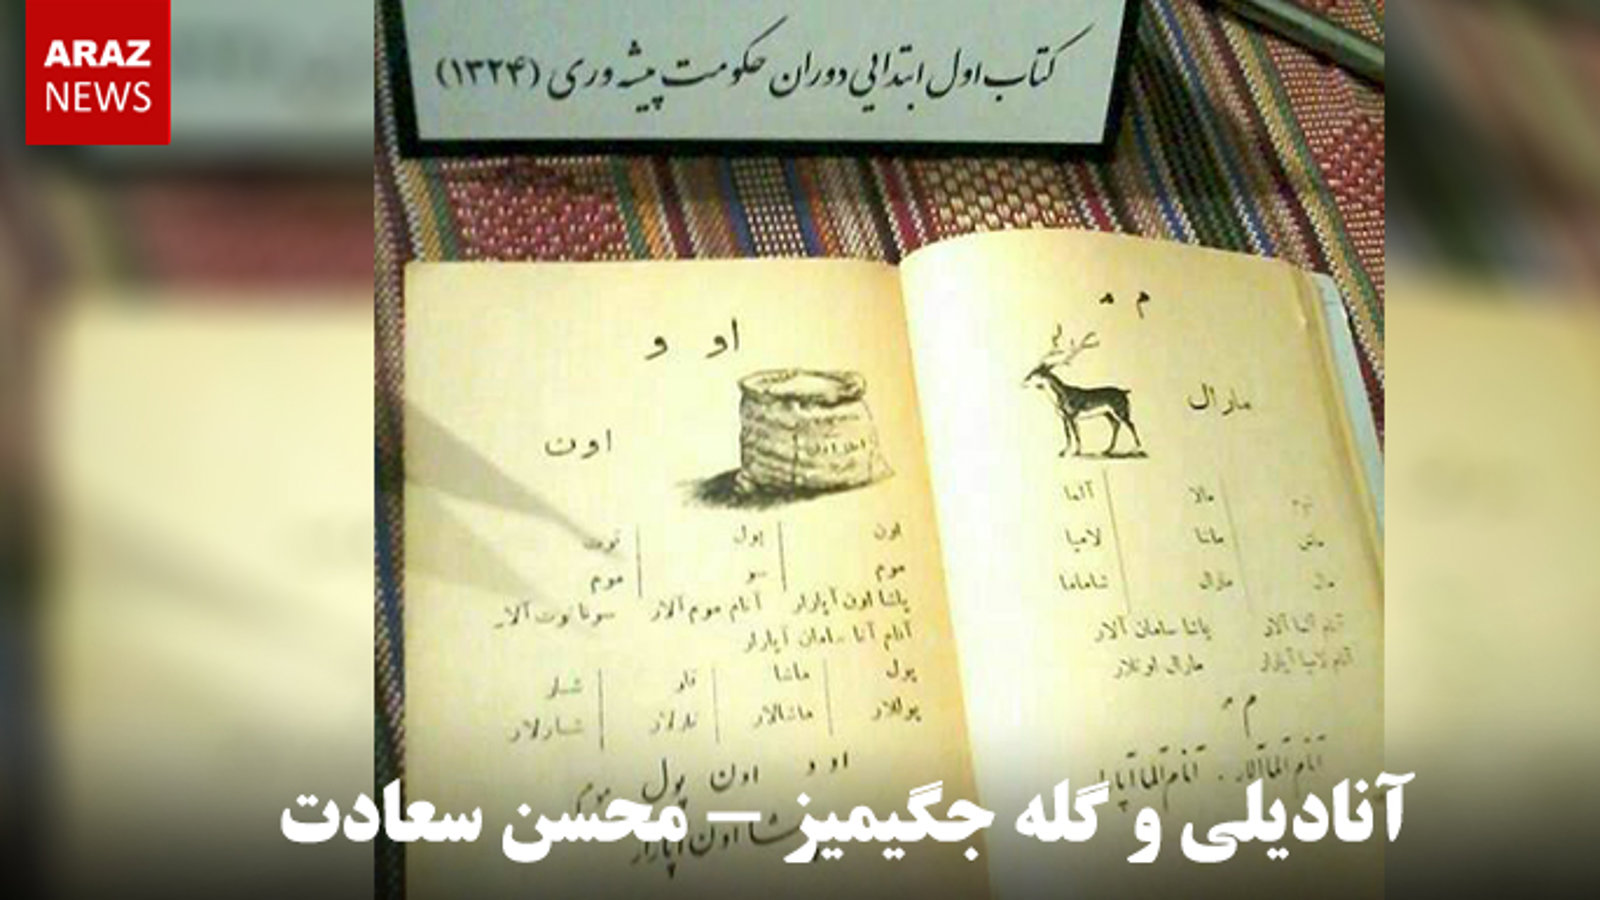 ARAZ
NEWS
کتاب اول ابتدایی دوران حکومت پیشه وری (۱۳۲۴)
م مـ
مارال
آلما
مالا
لامپا
ماشا
ماش
شاماما
مارال
مال
آنام آلما آلار پاشا سامان آلار
آنام لامپا آپارار مارال اوتلار
م مـ
آنام آلما آلار . آنام آلما
او و
اون
اون پول توت
موم سو موم
پاشا اون آپارار آنام موم آلار سونا توت آلار
آنام آنا سامان آپارار
پول ماشا شار
پوللار ماشالار شارلار
او و اون پول موم
اون آپارار
آنادیلی و گله جگیمیز – محسن سعادت